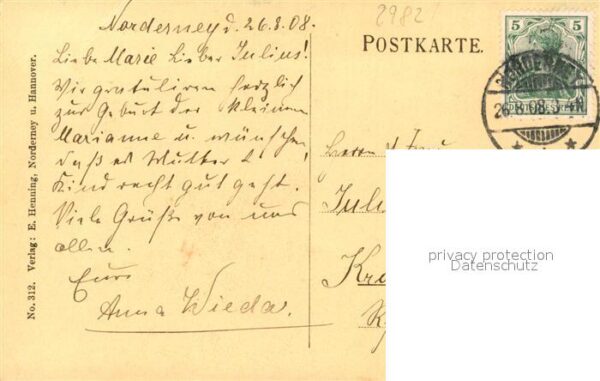 Norderney d. 26.8.08.
2982
Liebe Marie Lieber Julius!
Wir gratuliren herzlich
zur Geburt der kleinen
Marianne u. wünschen,
daß es Mutter &
Kind recht gut geht.
Viele Grüße von uns
allen.
Eure
Anna Wieda.
No. 312. Verlag: E. Henning, Norderney u. Hannover.
POSTKARTE.
5 5
NORDERNEY
26.8.08.3-4N
Herrn
Juli
Kr
privacy protection
Datenschutz